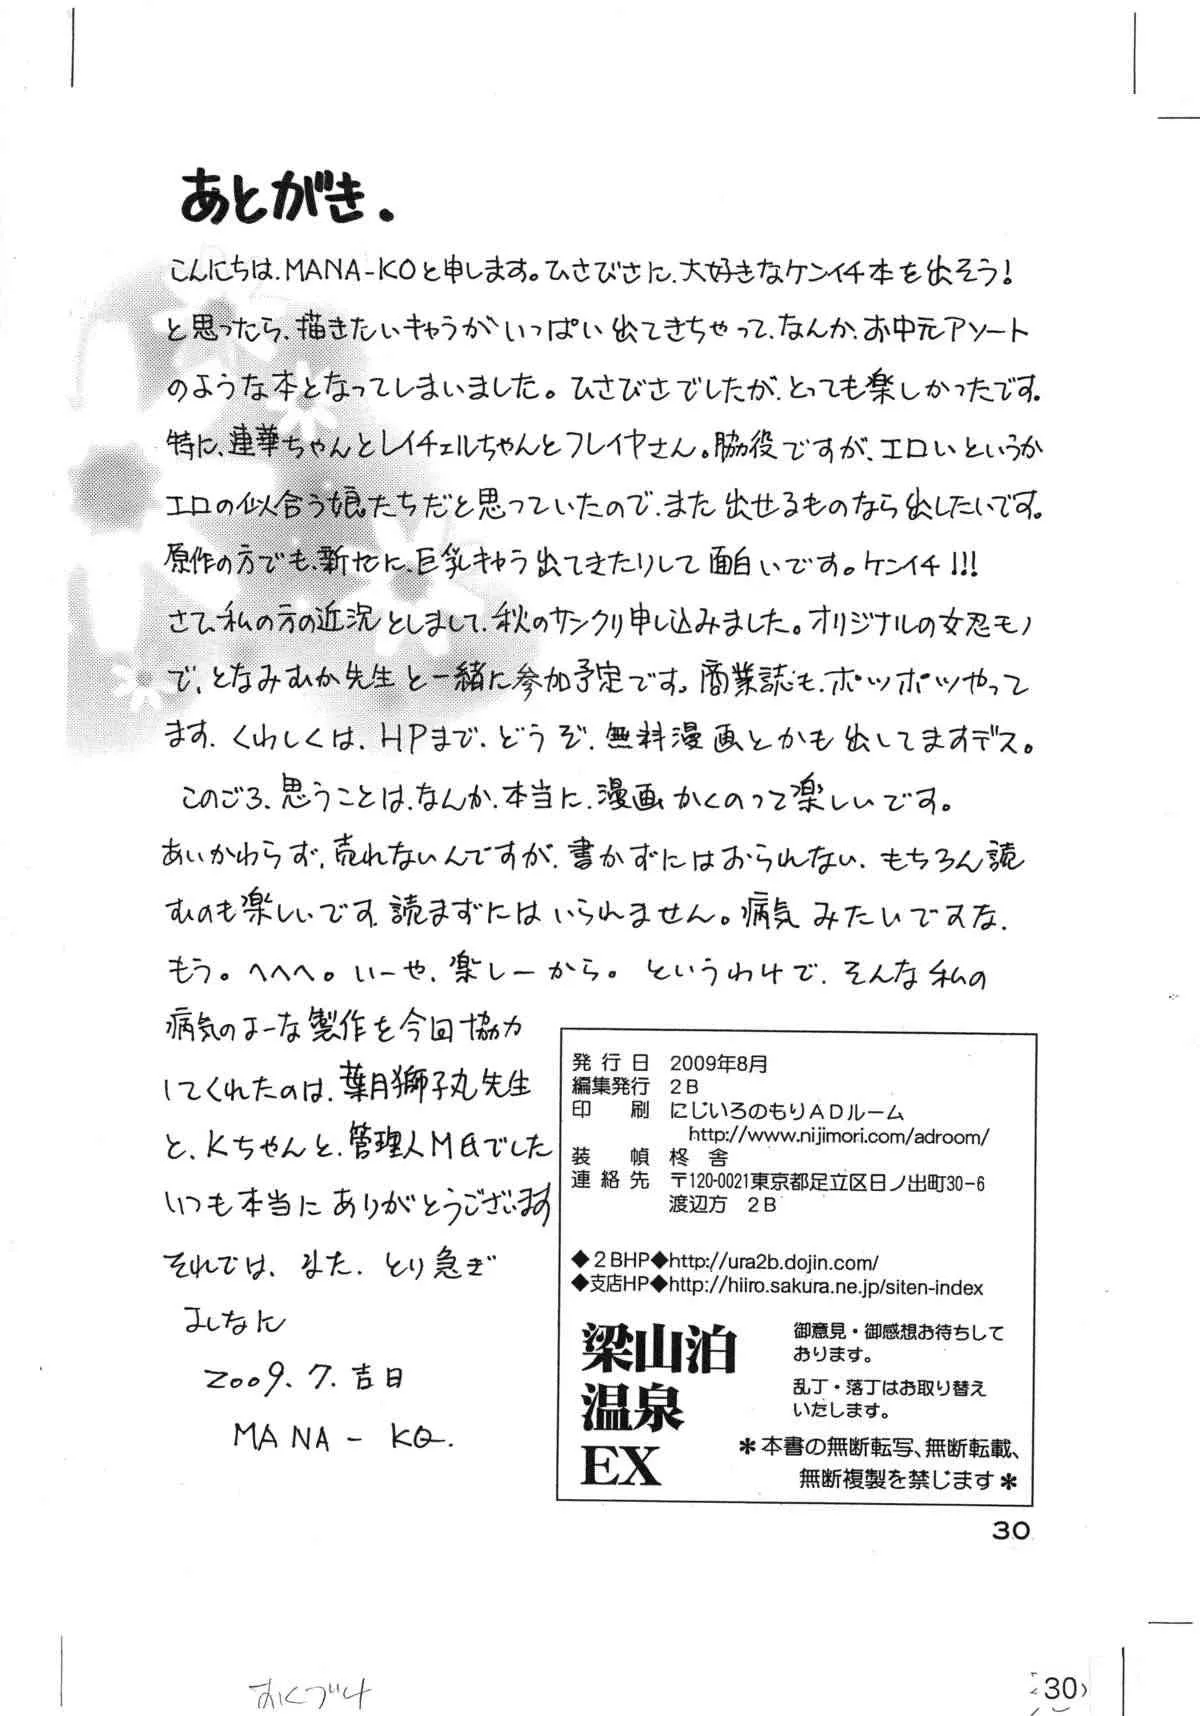 あとがき.
こんにちは、MANA-KOと申します。ひさびさに、大好きなケンイチ本を出そう!
と思ったら、描きたいキャラがいっぱい出てきちゃって、なんか、お中元アソート
のような本となってしまいました。ひさびさでしたが、とっても楽しかったです。
特に、連華ちゃんとレイチェルちゃんとフレイヤさん。脇役ですが、エロいというか
エロの似合う娘たちだと思っていたので、また出せるものなら出したいです。
原作の方でも、新たに、巨乳キャラ出てきたりして面白いです。ケンイチ!!!
さて、私の方の近況としまして、秋のサンクリ申し込みました。オリジナルの女忍モノ
で、となみむか先生と一緒に参加予定です。商業誌も、ポツポツやって
ます。くわしくは、HPまで、どうぞ、無料漫画とかも出してますデス。
このごろ、思うことは、なんか、本当に、漫画かくのって楽しいです。
あいかわらず、売れないんですが、書かずにはおられない、もちろん読
むのも楽しいです、読まずにはいられません。病気みたいですな、
もう。へへへ。いーや、楽しーから。というわけで、そんな私の
病気のよーな製作を今回協力
してくれたのは、葉月獅子丸先生
と、Kちゃんと、管理人M氏でした
いつも本当にありがとうございます
それでは、また、とり急ぎ
よしなに
2009.7.吉日
MANA-KO.
発行日 2009年8月
編集発行 2B
印刷 にじいろのもりADルーム
http://www.nijimori.com/adroom/
装幀 柊舎
連絡先 〒120-0021東京都足立区日ノ出町30-6
渡辺方 2B
◆2BHP◆http://ura2b.dojin.com/
◆支店HP◆http://hiiro.sakura.ne.jp/siten-index
梁山泊
温泉
EX
御意見・御感想お待ちして
おります。
乱丁・落丁はお取り替え
いたします。
＊本書の無断転写、無断転載、
無断複製を禁じます＊
30
おくづけ
30